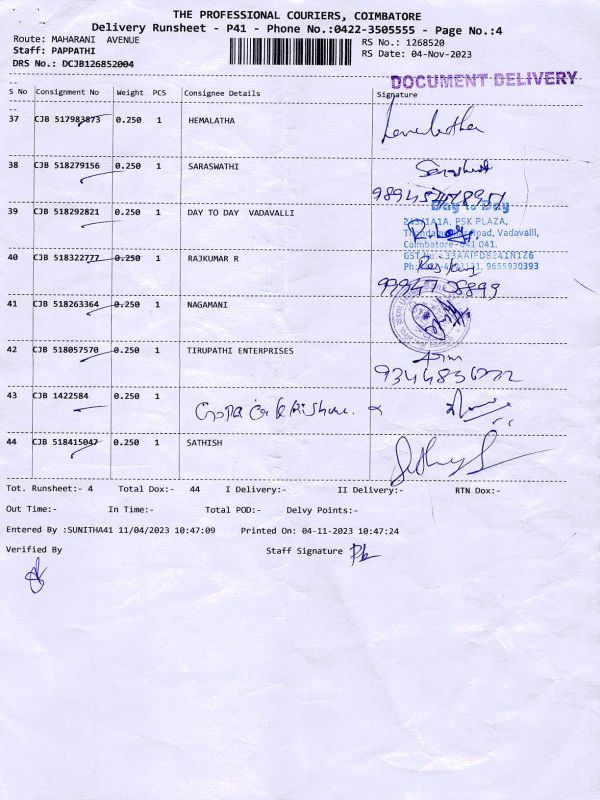 THE PROFESSIONAL COURIERS, COIMBATORE
Delivery Runsheet - P41 - Phone No.:0422-3505555 - Page No.:4
Route: MAHARANI AVENUE
RS No.: 1268520
Staff: PAPPATHI
RS Date: 04-Nov-2023
DRS No.: DCJB126852004
DOCUMENT DELIVERY
S No Consignment No Weight PCS Consignee Details Signature
37 CJB 517983873 0.250 1 HEMALATHA
38 CJB 518279156 0.250 1 SARASWATHI
39 CJB 518292821 0.250 1 DAY TO DAY VADAVALLI
Day to Day
PSK PLAZA,
Road, Vadavalli,
Coimbatore - 641 041.
40 CJB 518322777 0.250 1 RAJKUMAR R
9655930393
41 CJB 518263364 0.250 1 NAGAMANI
42 CJB 518057570 0.250 1 TIRUPATHI ENTERPRISES
43 CJB 1422584 0.250 1
44 CJB 518415047 0.250 1 SATHISH
Tot. Runsheet:- 4 Total Dox:- 44 I Delivery:- II Delivery:- RTN Dox:-
Out Time:- In Time:- Total POD:- Delvy Points:-
Entered By :SUNITHA41 11/04/2023 10:47:09 Printed On: 04-11-2023 10:47:24
Verified By Staff Signature